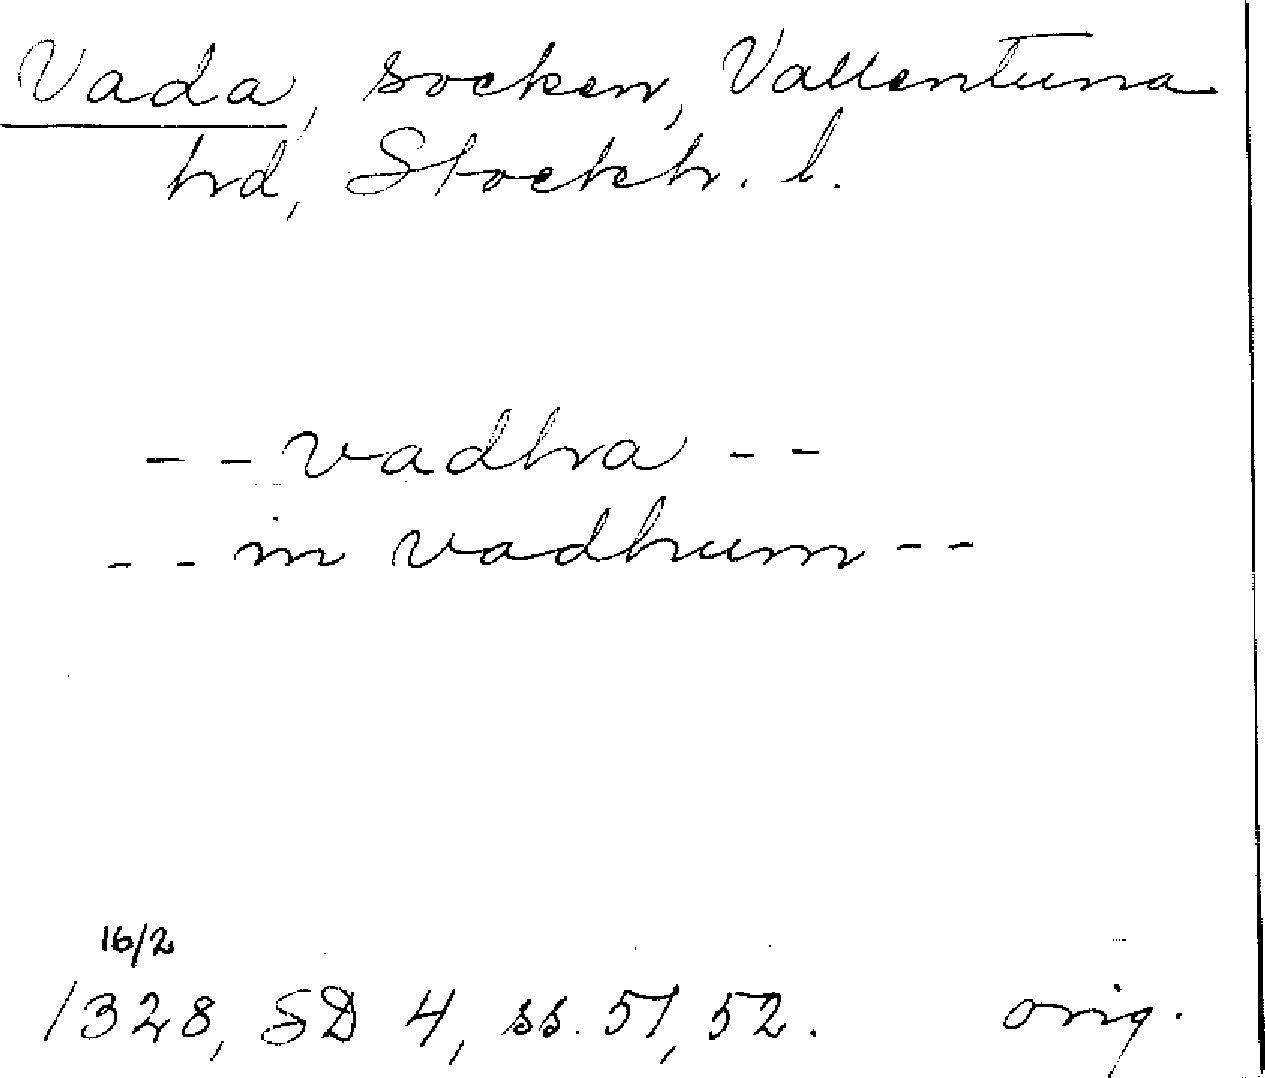 Vada, socken, Vallentuna
hd, Stockh. l.
- - vadha - -
- - in vadhum - -
16/2
1328, SD 4, ss. 51, 52. orig.